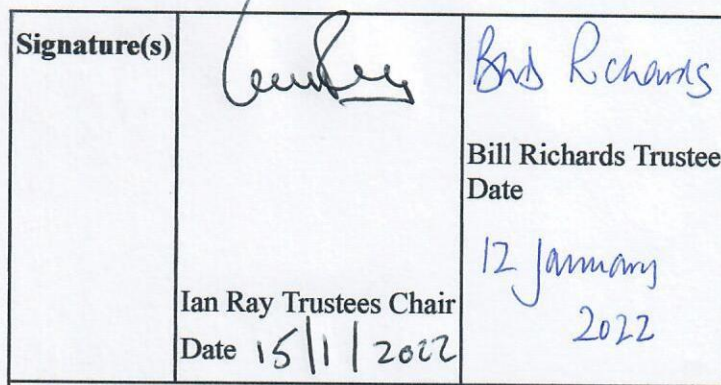 Signature(s)
Ian Ray Trustees Chair
Date 15/1/2022
Richards
Bill Richards Trustee
Date
12 January
2022